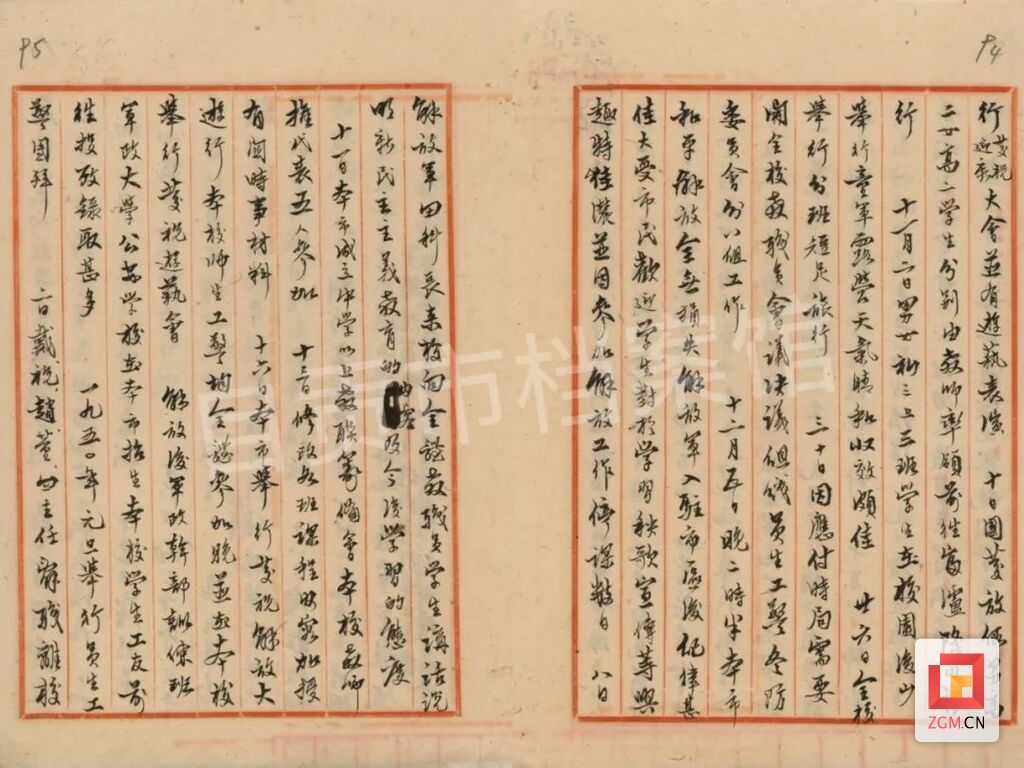 P4
行慶祝大會並有遊藝表演 十日國慶放假
二女高二學生分别由教師率領前往富瀘
行 十一月二日男女初三上三班學生在校園後山
舉行童軍露營天氣晴和收效頗佳 廿六日全校
舉行分班短足旅行 三十日因應付時局需要
開全校教職員會議决議組織員生工警冬防
委員會分八組工作 十二月五日晚二時半本市
和平解放全無損失解放軍入駐市區後紀律甚
佳大受市民歡迎學生對於學習秧歌宣傳等興
趣特濃並因參加解放工作停課數日 八日
P5
解放軍田科長來校向全體教職員學生講話説
明新民主主義教育的内容及今後學習的態度
十一日本市成立中學以上教聯籌備會本校教師
推代表五人參加 十三日修改各班課程内容加授
有關時事材料 十六日本市舉行慶祝解放大
遊行本校師生工警均全體參加晚並在本校
舉行慶祝遊藝會 解放後軍政幹部訓練班
軍政大學公安學校在本市招生本校學生工友前
往投效錄取甚多 一九五〇年元旦舉行員生工
警團拜 二日戴、祝、趙、董、四主任辭職離校
自贡市档案馆
ZGM.CN